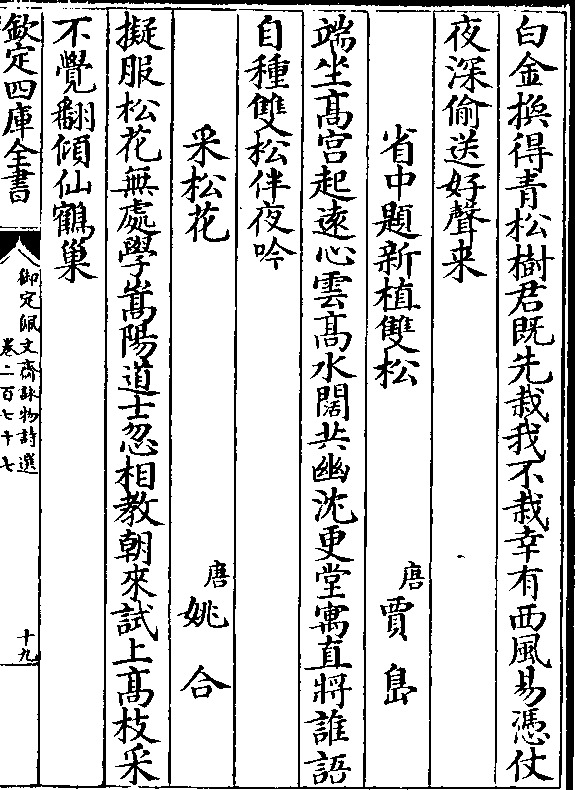 白金換得青松樹君既先栽我不栽幸有西風易憑仗
夜深偷送好聲来
省中題新植雙松
唐
賈島
端坐髙宫起逺心雲髙水闊共幽沈更堂寓直將誰語
自種雙松伴夜吟
采松花
唐
姚合
擬服松花無處學嵩陽道士忽相教朝來試上髙枝采
不覺翻傾仙鶴巢
欽定四庫全書
御定佩文齋詠物詩選
卷二百七十七
十九